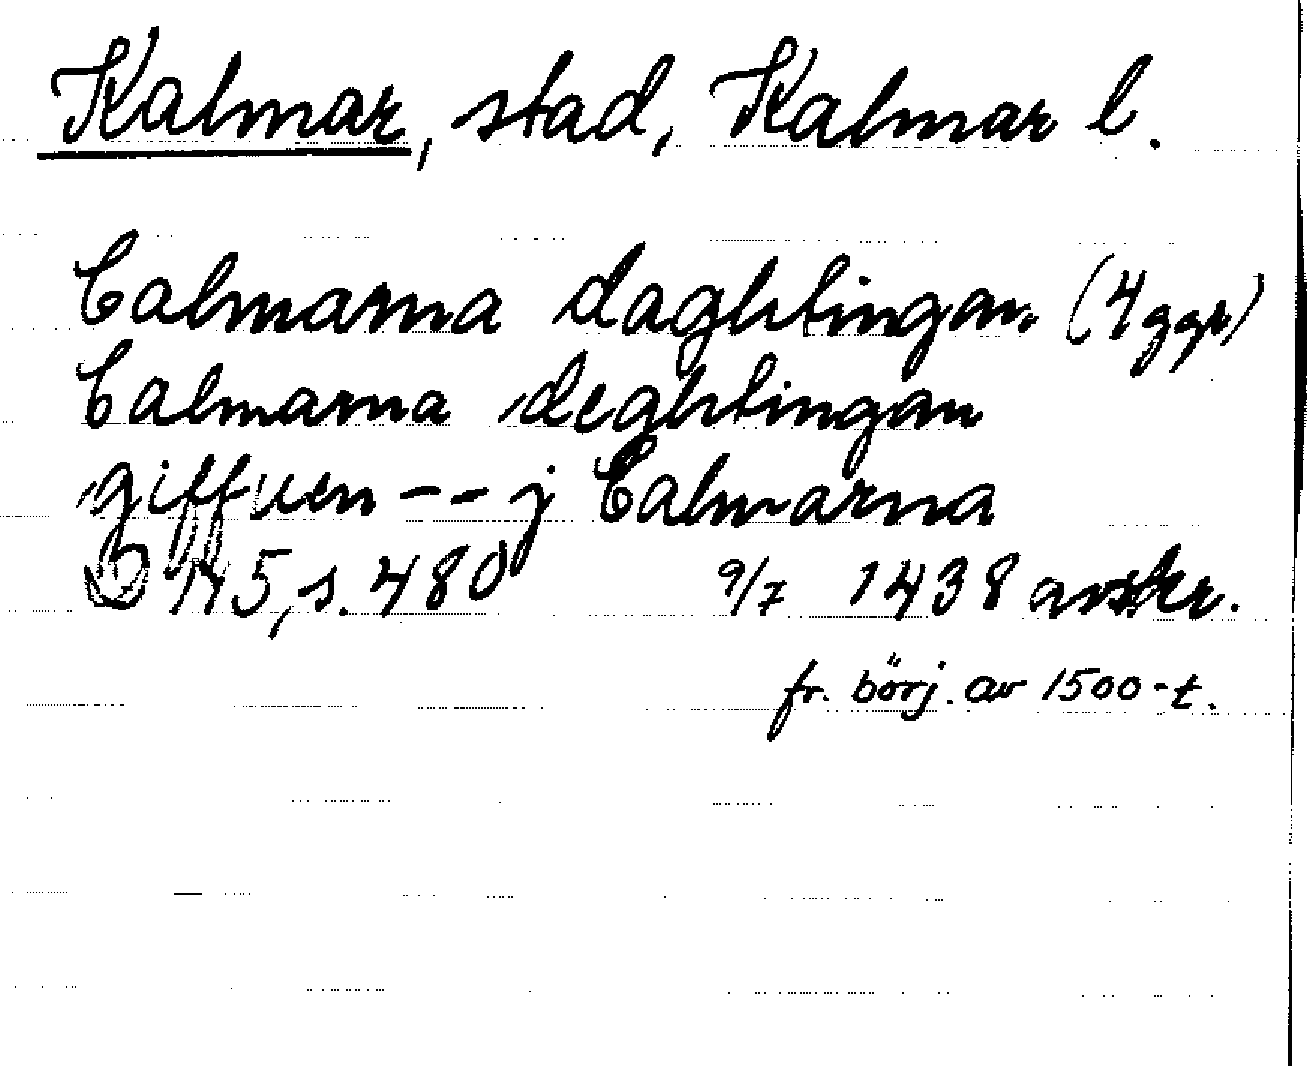 Kalmar, stad, Kalmar l.
Calmarna daghtingan (4 ggr)
Calmarna deghtingan
giffuen -- j Calmarna
D 145, s. 480 9/7 1438 avskr.
fr. börj. av 1500-t.